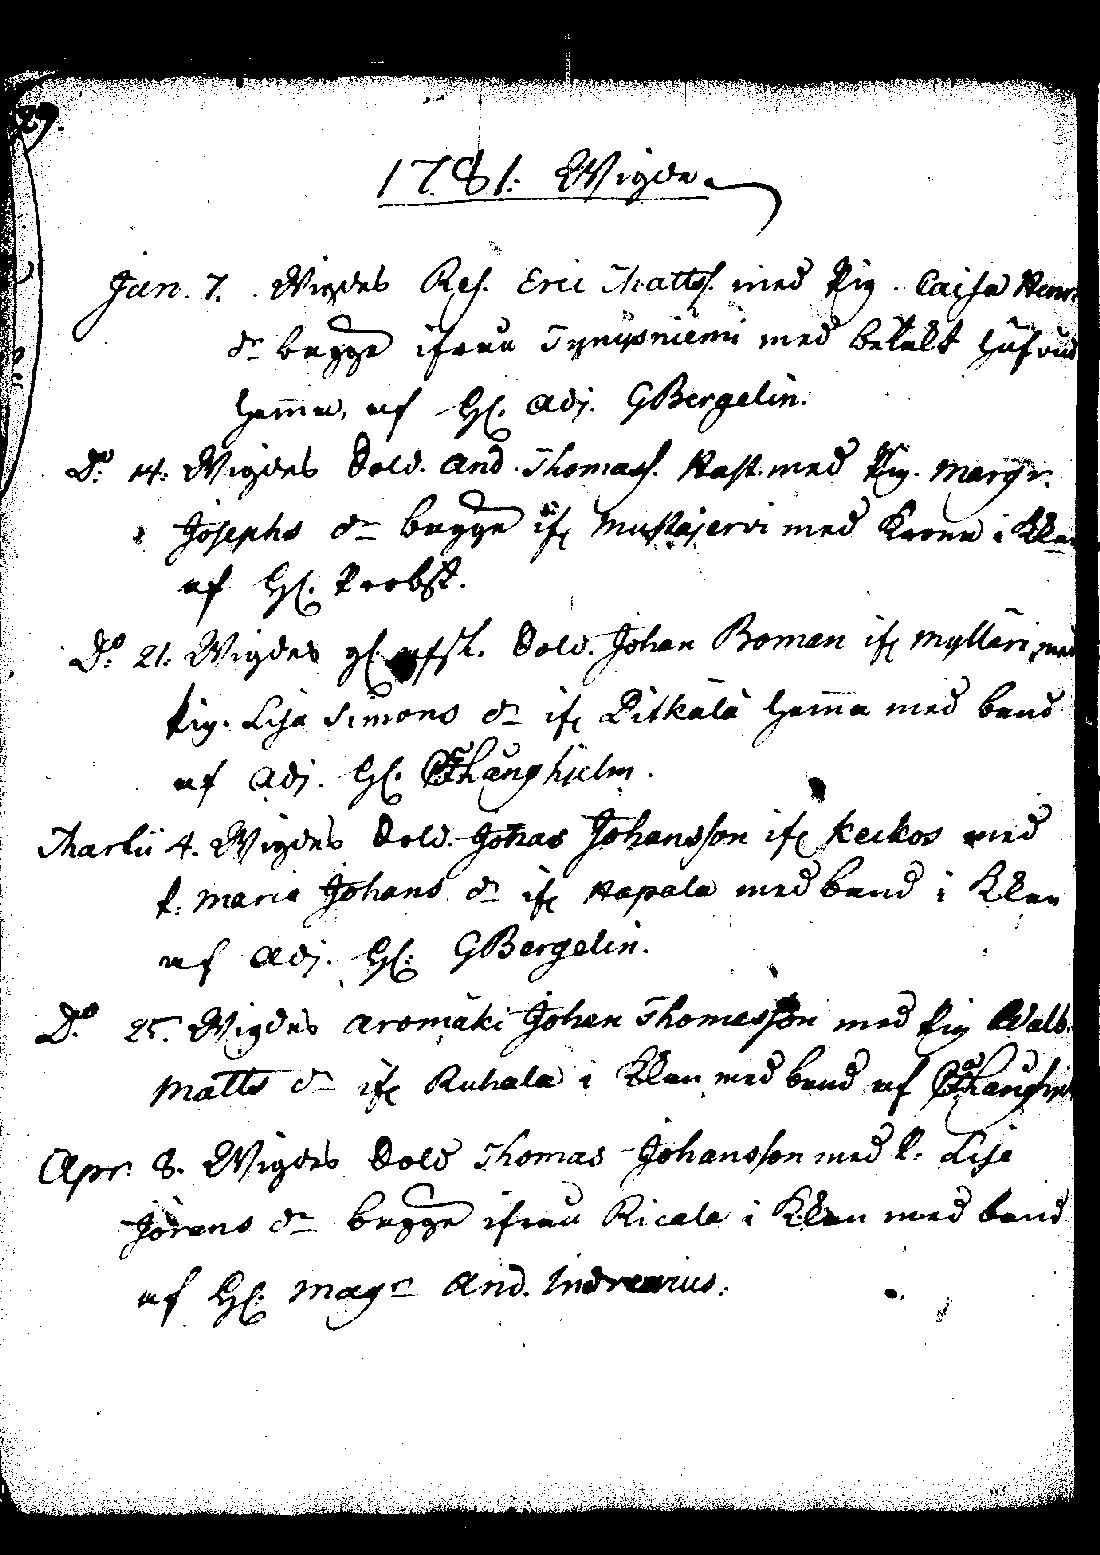 1781. Wigde
Jan. 7. Wigdes Res. Eric Matts. med Pig. Caisa Henr.
dr begge ifrån Tynysniemi med betalt
hemma, af H. Adj. GBergelin.
Do. 14. Wigdes Sold. And. Thomass. Rast. med Pig. Margr.
Josephs dr begge ifr Mustajervi med Krona i Klan
af H. Probst.
Do. 21. Wigdes gl. afsk. Sold. Johan Boman ifr Mylläri, med
Pig. Lisa Simons dr ifr Pitkälä hemma med band
af Adj. H.
Martii 4. Wigdes Sold. Jonas Johansson ifr Keckos med
P. Maria Johans dr ifr Hapala med band i Klan
af Adj. H. GBergelin.
Do. 25. Wigdes Aromäki Johan Thomasson med Pig Walb.
Matts dr ifr Ruhala i Klan med band af
Apr. 8. Wigdes Sold Thomas Johansson med P. Lisa
Jörans dr begge ifrån Ricala i Klan med band
af H. Magr And. Indrenius.